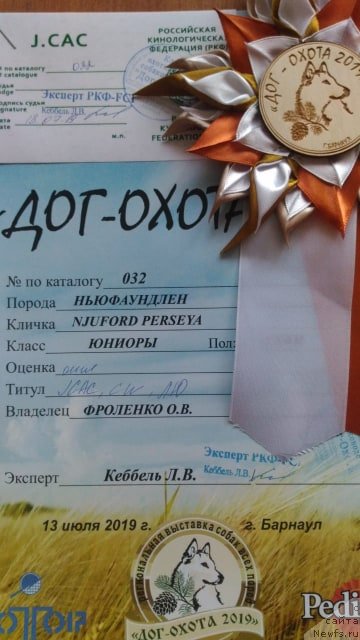 J.CAC
РОССИЙСКАЯ
КИНОЛОГИЧЕСКАЯ
ФЕДЕРАЦИЯ (РКФ)
№ по каталогу 032
catalogue
Эксперт РКФ-FCI
Кеббель Л.В.
м.п.
«ДОГ - ОХОТА»
Г.БАРНАУЛ
«ДОГ-ОХОТА
№ по каталогу 032
Порода НЬЮФАУНДЛЕН
Кличка NJUFORD PERSEYA
Класс ЮНИОРЫ Пол:
Оценка отл
Титул JCAC, CW, ЛЮ
Владелец ФРОЛЕНКО О.В.
Эксперт РКФ-FCI
Кеббель Л.В.
Эксперт Кеббель Л.В.
13 июля 2019 г. г. Барнаул
выставка собак всех пород
«ДОГ-ОХОТА 2019»
Pedi
сайта
Newfs.ru